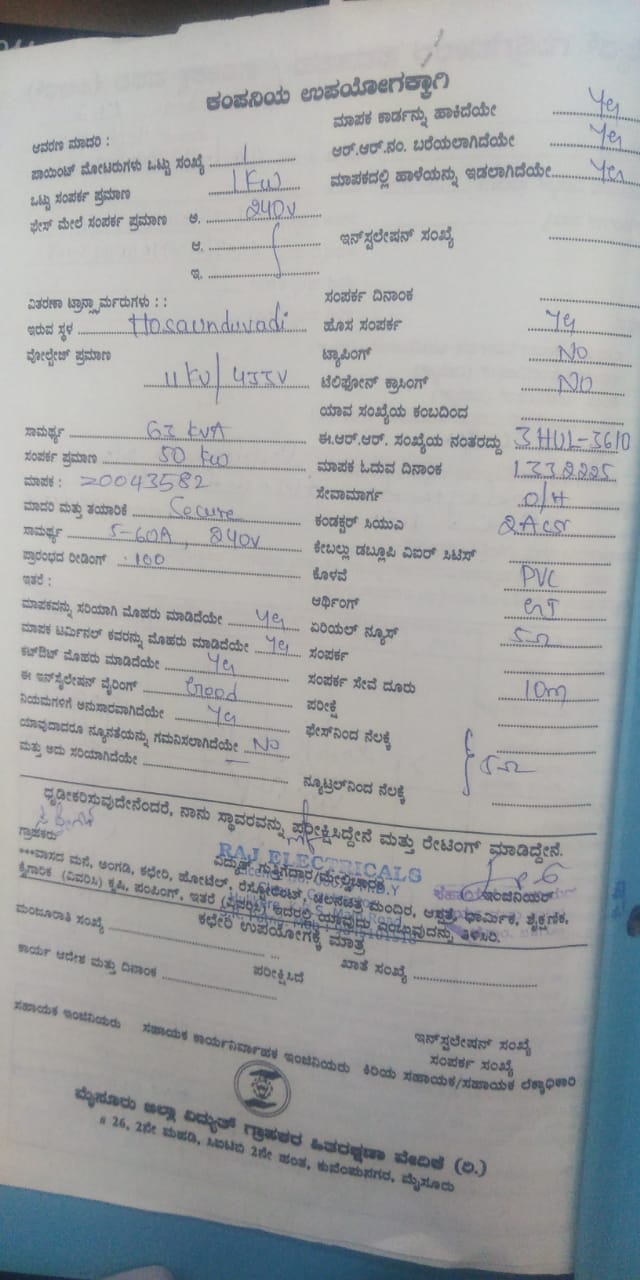 ಕಂಪನಿಯ ಉಪಯೋಗಕ್ಕಾಗಿ
ಆವರಣ ಮಾದರಿ :
ಪಾಯಿಂಟ್ ಮೋಟರುಗಳು ಒಟ್ಟು ಸಂಖ್ಯೆ 1
ಒಟ್ಟು ಸಂಪರ್ಕ ಪ್ರಮಾಣ 1 KW
ಫೇಸ್ ಮೇಲೆ ಸಂಪರ್ಕ ಪ್ರಮಾಣ ಅ. 240V
ಆ.
ಇ.
ವಿತರಣಾ ಟ್ರಾನ್ಸ್ಫಾರ್ಮರುಗಳು : :
ಇರುವ ಸ್ಥಳ Hosaunduvadi
ವೋಲ್ಟೇಜ್ ಪ್ರಮಾಣ
11 KV / 433V
ಸಾಮರ್ಥ್ಯ 63 KVA
ಸಂಪರ್ಕ ಪ್ರಮಾಣ 50 KW
ಮಾಪಕ : 20043582
ಮಾದರಿ ಮತ್ತು ತಯಾರಿಕೆ Secure
ಸಾಮರ್ಥ್ಯ 5-60A, 240V
ಪ್ರಾರಂಭದ ರೀಡಿಂಗ್ 100
ಇತರೆ :
ಮಾಪಕವನ್ನು ಸರಿಯಾಗಿ ಮೊಹರು ಮಾಡಿದೆಯೇ Yes
ಮಾಪಕ ಟರ್ಮಿನಲ್ ಕವರನ್ನು ಮೊಹರು ಮಾಡಿದೆಯೇ Yes
ಕಟ್‌ಔಟ್ ಮೊಹರು ಮಾಡಿದೆಯೇ Yes
ಈ ಇನ್‌ಸ್ಟಲೇಷನ್ ವೈರಿಂಗ್ Good
ನಿಯಮಗಳಿಗೆ ಅನುಸಾರವಾಗಿದೆಯೇ Yes
ಯಾವುದಾದರೂ ನ್ಯೂನತೆಯನ್ನು ಗಮನಿಸಲಾಗಿದೆಯೇ NO
ಮತ್ತು ಅದು ಸರಿಯಾಗಿದೆಯೇ —
ಮಾಪಕ ಕಾರ್ಡನ್ನು ಹಾಕಿದೆಯೇ Yes
ಆರ್.ಆರ್.ನಂ. ಬರೆಯಲಾಗಿದೆಯೇ Yes
ಮಾಪಕದಲ್ಲಿ ಹಾಳೆಯನ್ನು ಇಡಲಾಗಿದೆಯೇ Yes
ಇನ್‌ಸ್ಟಲೇಷನ್ ಸಂಖ್ಯೆ
ಸಂಪರ್ಕ ದಿನಾಂಕ
ಹೊಸ ಸಂಪರ್ಕ Yes
ಟ್ಯಾಪಿಂಗ್ NO
ಟೆಲಿಫೋನ್ ಕ್ರಾಸಿಂಗ್ NO
ಯಾವ ಸಂಖ್ಯೆಯ ಕಂಬದಿಂದ
ಈ.ಆರ್.ಆರ್. ಸಂಖ್ಯೆಯ ನಂತರದ್ದು 3HUL-3610
ಮಾಪಕ ಓದುವ ದಿನಾಂಕ 1332225
ಸೇವಾಮಾರ್ಗ O/H
ಕಂಡಕ್ಟರ್ ಸಿಯುವಿ 2Acsr
ಕೇಬಲ್ಲು ಡಬ್ಲೂಪಿ ವಿಐರ್ ಸಿಟಿಸ್
ಕೊಳವೆ PVC
ಆರ್ಥಿಂಗ್ GI
ಏರಿಯಲ್ ನ್ಯೂಸ್ 5Ω
ಸಂಪರ್ಕ
ಸಂಪರ್ಕ ಸೇವೆ ದೂರು 10m
ಪರೀಕ್ಷೆ
ಫೇಸ್‌ನಿಂದ ನೆಲಕ್ಕೆ
5Ω
ನ್ಯೂಟ್ರಲ್‌ನಿಂದ ನೆಲಕ್ಕೆ
ಧೃಡೀಕರಿಸುವುದೇನೆಂದರೆ, ನಾನು ಸ್ಥಾವರವನ್ನು ಪರೀಕ್ಷಿಸಿದ್ದೇನೆ ಮತ್ತು ರೇಟಿಂಗ್ ಮಾಡಿದ್ದೇನೆ.
ಗ್ರಾಹಕರು ವಿದ್ಯುತ್ ಗುತ್ತಿಗೆದಾರ/ಮೇಲ್ವಿಚಾರಕ ಇಂಜಿನಿಯರ್
RAJ ELECTRICALS
***ವಾಸದ ಮನೆ, ಅಂಗಡಿ, ಕಛೇರಿ, ಹೋಟೆಲ್, ರೆಸ್ಟೋರೆಂಟ್, ಚಲನಚಿತ್ರ ಮಂದಿರ, ಆಸ್ಪತ್ರೆ, ಧಾರ್ಮಿಕ, ಶೈಕ್ಷಣಿಕ,
ಕೈಗಾರಿಕೆ (ವಿವರಿಸಿ) ಕೃಷಿ, ಪಂಪಿಂಗ್, ಇತರೆ (ವಿವರಿಸಿ) ಇದರಲ್ಲಿ ಯಾವುದು ಎಂಬುವುದನ್ನು ತಿಳಿಸಿರಿ.
ಕಛೇರಿ ಉಪಯೋಗಕ್ಕೆ ಮಾತ್ರ
ಮಂಜೂರಾತಿ ಸಂಖ್ಯೆ ಖಾತೆ ಸಂಖ್ಯೆ
ಕಾರ್ಯ ಆದೇಶ ಮತ್ತು ದಿನಾಂಕ ಪರೀಕ್ಷಿಸಿದೆ
ಇನ್‌ಸ್ಟಲೇಷನ್ ಸಂಖ್ಯೆ
ಸಂಪರ್ಕ ಸಂಖ್ಯೆ
ಸಹಾಯಕ ಇಂಜಿನಿಯರು ಸಹಾಯಕ ಕಾರ್ಯನಿರ್ವಾಹಕ ಇಂಜಿನಿಯರು ಕಿರಿಯ ಸಹಾಯಕ/ಸಹಾಯಕ ಲೆಕ್ಕಾಧಿಕಾರಿ
ಮೈಸೂರು ಜಿಲ್ಲಾ ವಿದ್ಯುತ್ ಗ್ರಾಹಕರ ಹಿತರಕ್ಷಣಾ ವೇದಿಕೆ (ರಿ.)
# 26, 2ನೇ ಮಹಡಿ, ಸಿಐಟಿಬಿ 2ನೇ ಹಂತ, ಕುವೆಂಪುನಗರ, ಮೈಸೂರು